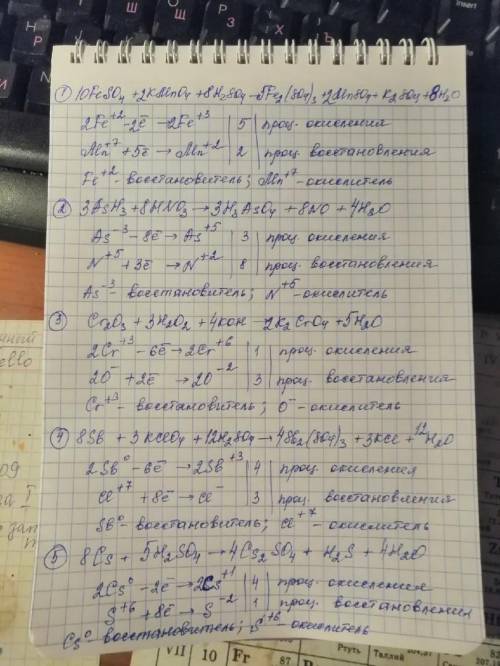 ① 10FeSO4 + 2KMnO4 + 8H2SO4 → 5Fe2(SO4)3 + 2MnSO4 + K2SO4 + 8H2O
2Fe+2 - 2ē → 2Fe+3 | 5 | проц. окисления
Mn+7 + 5ē → Mn+2 | 2 | проц. восстановления
Fe+2 - восстановитель; Mn+7 - окислитель
② 3AsH3 + 8HNO3 → 3H3AsO4 + 8NO + 4H2O
As-3 - 8ē → As+5 | 3 | проц. окисления
N+5 + 3ē → N+2 | 8 | проц. восстановления
As-3 - восстановитель; N+5 - окислитель
③ Cr2O3 + 3H2O2 + 4KOH → 2K2CrO4 + 5H2O
2Cr+3 - 6ē → 2Cr+6 | 1 | проц. окисления
2O- + 2ē → 2O-2 | 3 | проц. восстановления
Cr+3 - восстановитель; O- - окислитель
④ 8Sb + 3KClO4 + 12H2SO4 → 4Sb2(SO4)3 + 3KCl + 12H2O
2Sb0 - 6ē → 2Sb+3 | 4 | проц. окисления
Cl+7 + 8ē → Cl- | 3 | проц. восстановления
Sb0 - восстановитель; Cl+7 - окислитель
⑤ 8Cs + 5H2SO4 → 4Cs2SO4 + H2S + 4H2O
2Cs0 - 2ē → 2Cs+1 | 4 | проц. окисления
S+6 + 8ē → S-2 | 1 | проц. восстановления
Cs0 - восстановитель; S+6 - окислитель
VII 10 Fr 87
Ртуть Таллий